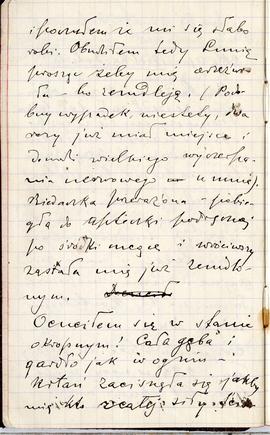 i poczułem że mi się słabo
robi. Obudziłem tedy Lunię
prosząc żeby mię
da - bo zemdleję. (Podo-
bny wypadek, niestety,
razy już miał miejsce i
dowodzi wielkiego wyczerpa-
nia nerwowego u mnie).
Biedaczka przerażona - pobie-
gła do apteczki podręcznej
po środki męcie i wróciwszy
zastała mię już zemdlo-
nym.
Ocuciłem się w stanie
okropnym! Cała gęba i
gardło jak w ogniu -
Krtań zacisnęła się jakby
mię kto z całej siły